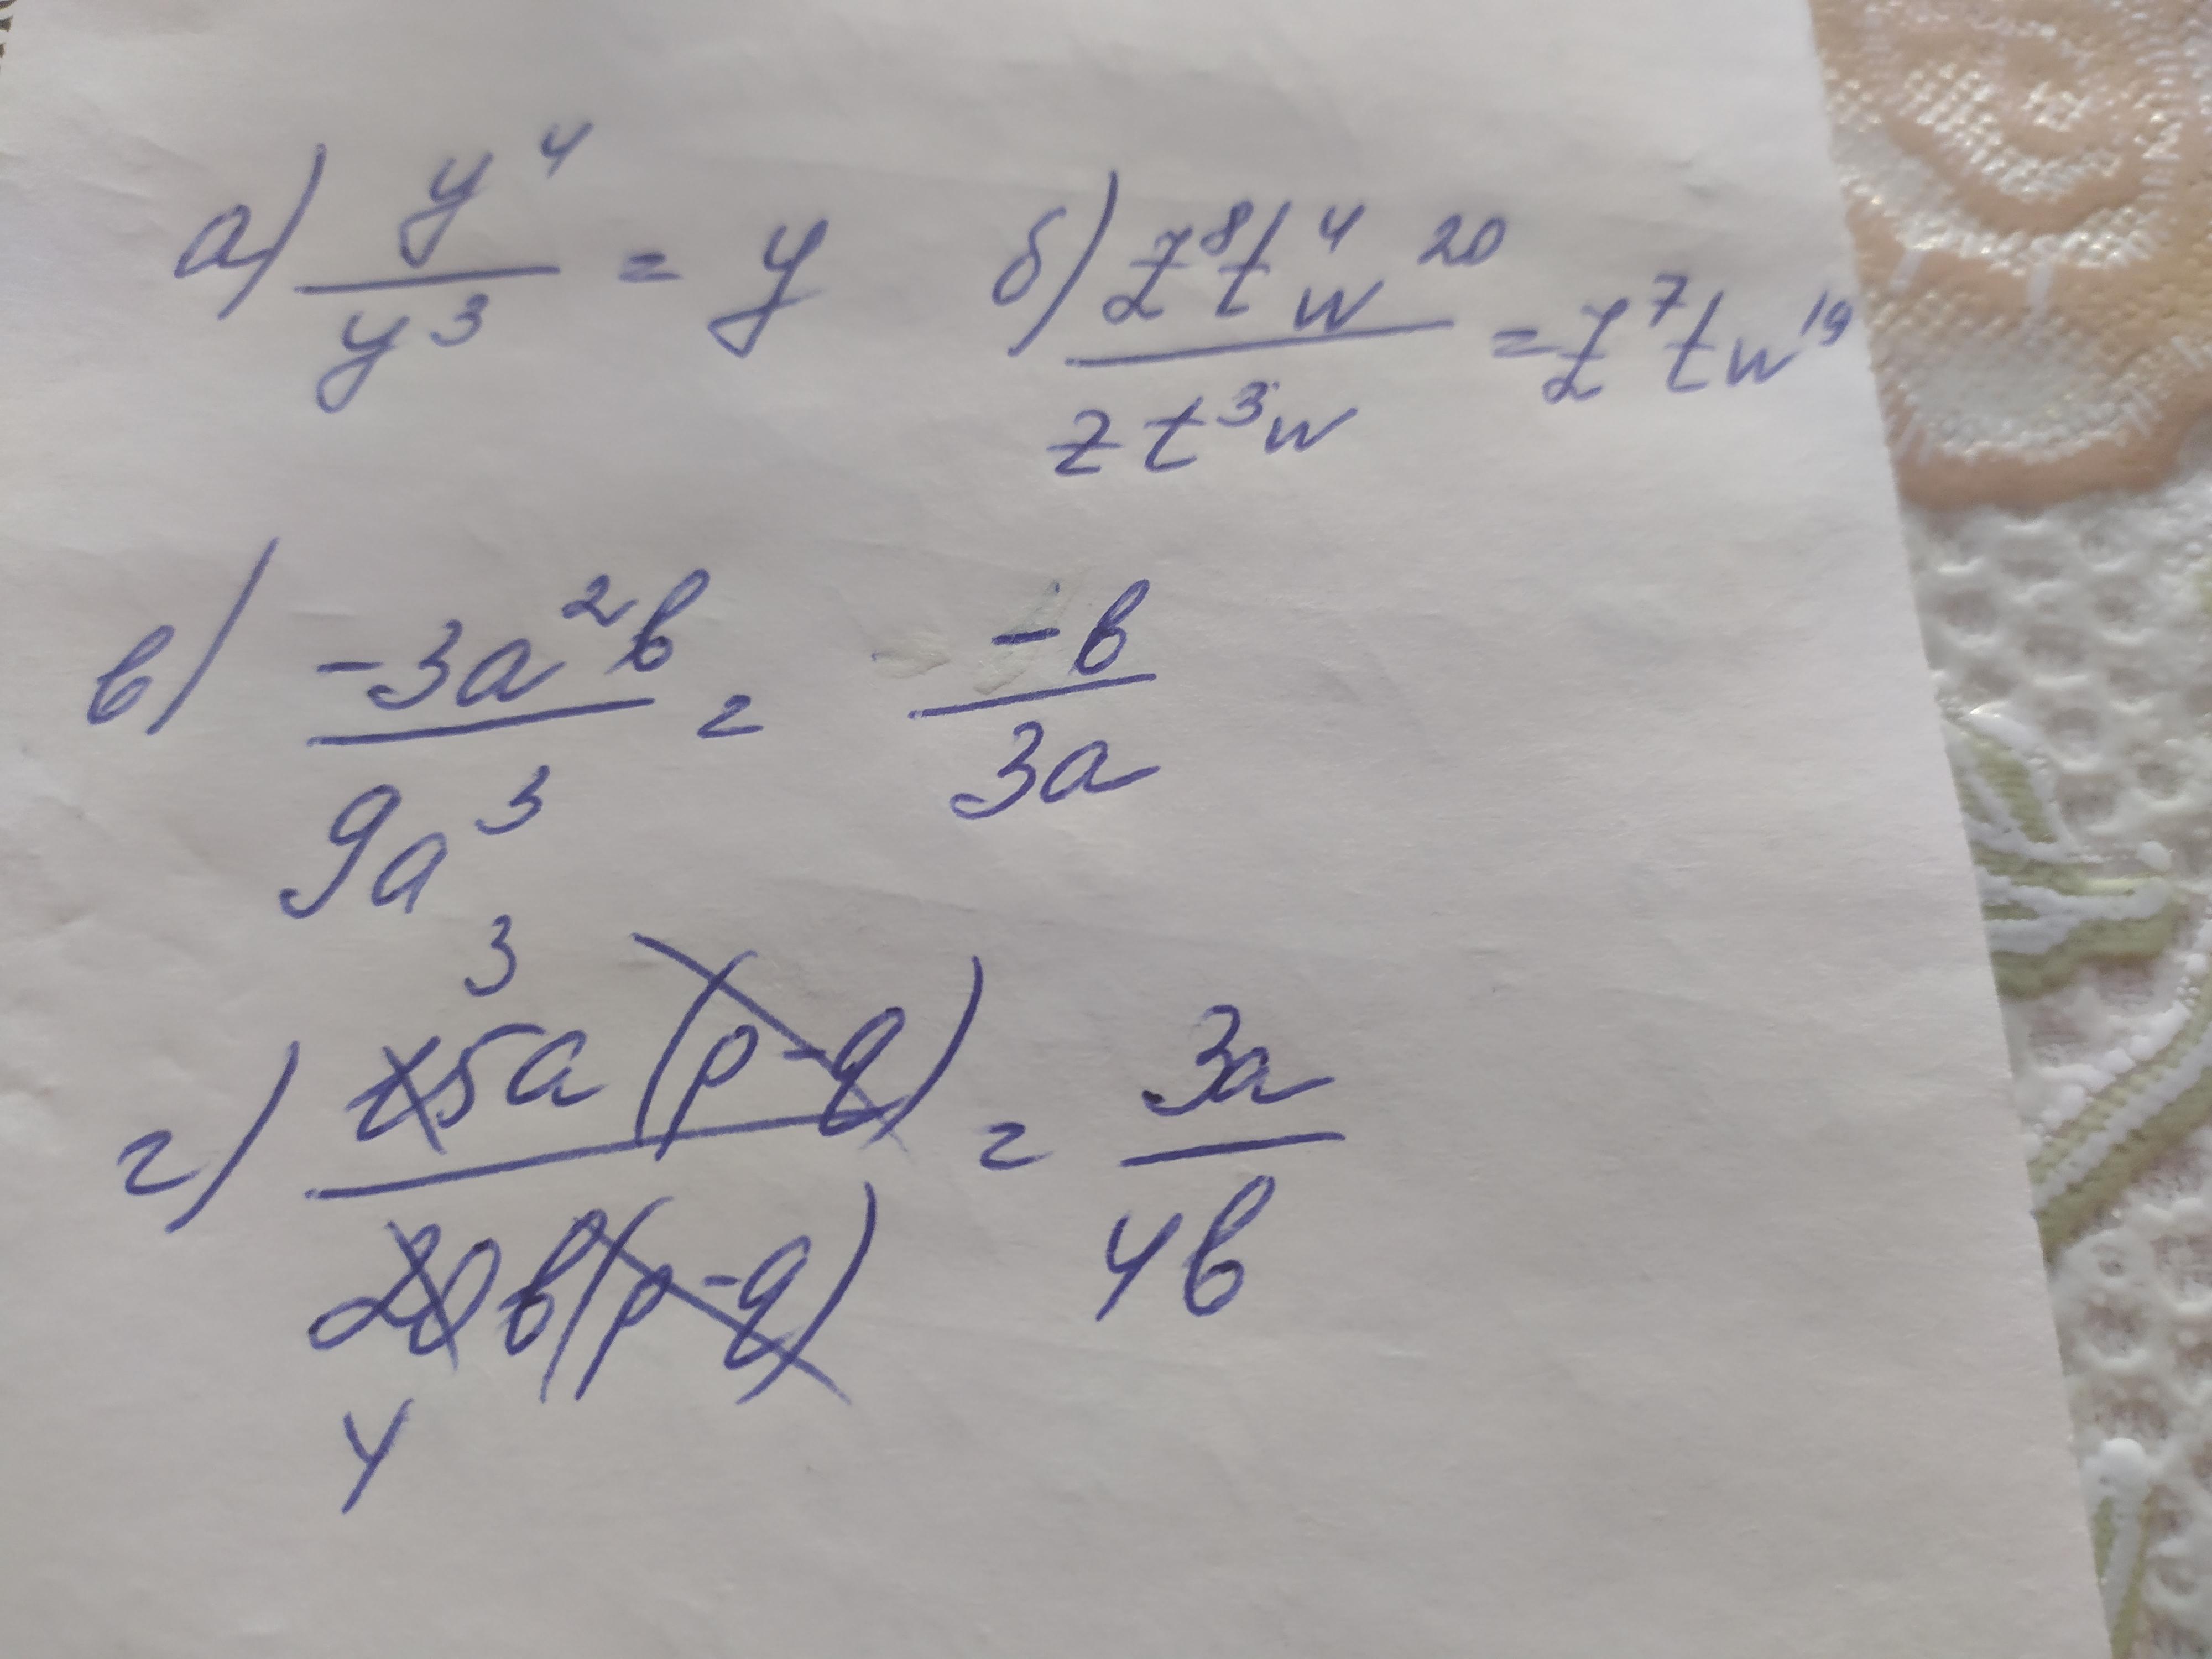 а) y⁴/y³ = y б) z⁸t⁴w²⁰/zt³w = z⁷tw¹⁹
в) -3a²b/9a³ = -b/3a
3
г) 15a(p-q)/20b(p-q) = 3a/4b
4